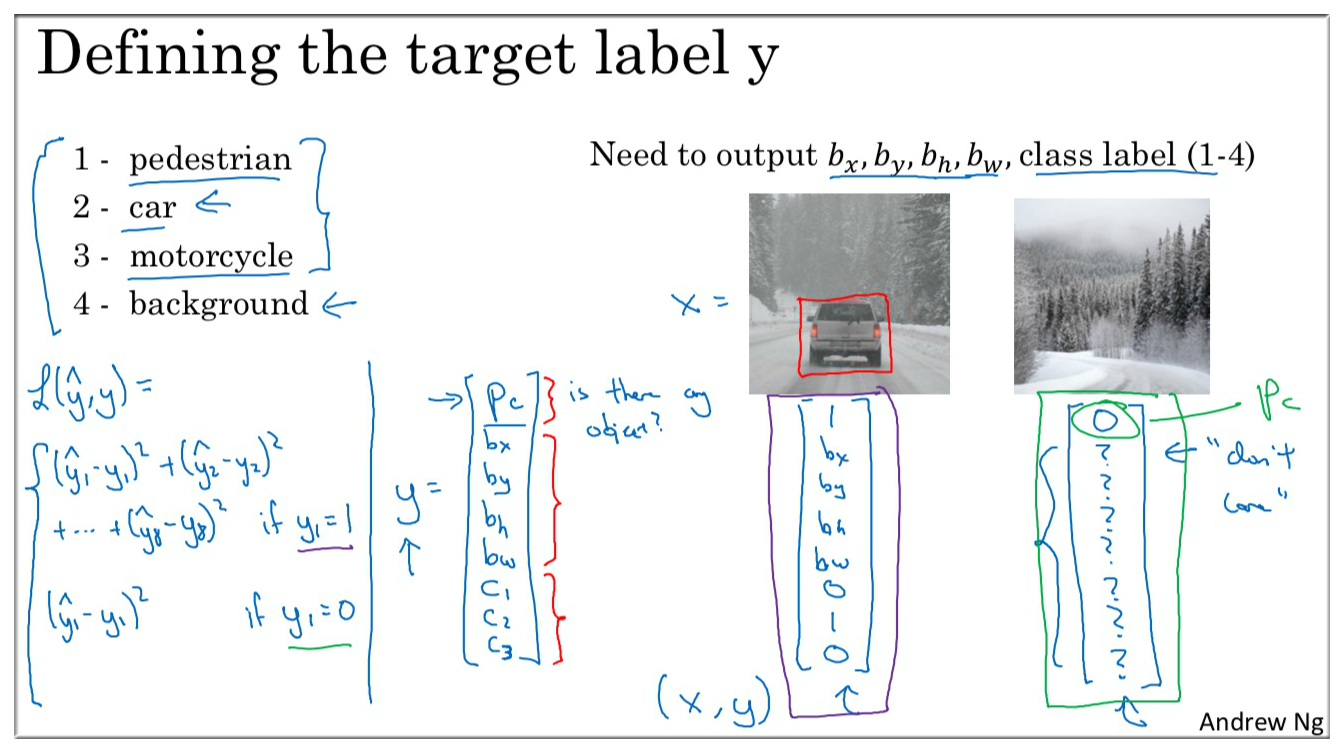 Defining the target label y
1 - pedestrian
2 - car ←
3 - motorcycle
4 - background ←
Need to output bₓ, b_y, b_h, b_w, class label (1-4)
x =
ℒ(ŷ, y) =
(ŷ₁-y₁)² + (ŷ₂-y₂)²
+ ... + (ŷ₈-y₈)² if y₁=1
(ŷ₁-y₁)² if y₁=0
y =
→
↑
Pc
bx
by
bh
bw
C₁
C₂
C₃
is there any
object?
1
bx
by
bh
bw
0
1
0
↑
(x, y)
0
?
?
?
?
?
?
?
Pc
← "don't
care"
Andrew Ng